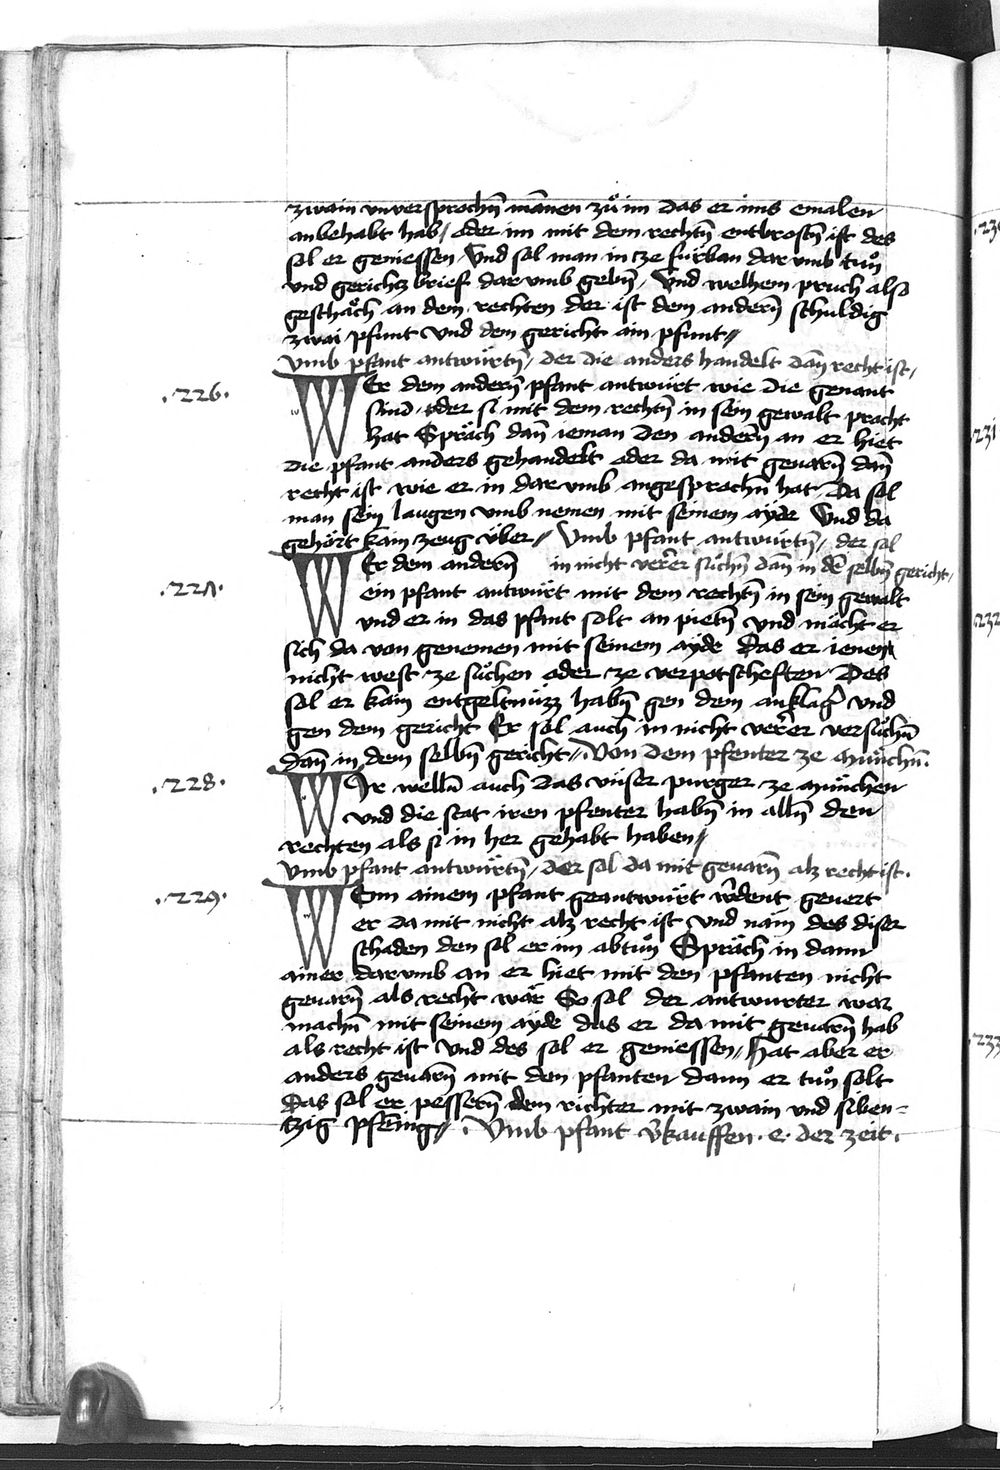 zwain unversprochn̄ mānen zů im das er ims emalen
anbehabt hab / oder im mit dem rechtn̄ enbrostn̄ ist des
sol er geniessen Und sol man in ze fürban dar umb tůn
und gerichtz brief dar umb gebn̄ / Und welhem pruch also
geschäch an dem rechten der ist dem andern̄ schuldig
zwai pfunt Und dem gericht ain pfunt //
Umb pfant antwürtn̄ / der die anders handelt dan̄ recht ist /
.226.
WEr dem andern̄ pfant antwürt wie die genant
sind oder si mit dem rechtn̄ in sein gewalt pracht
hat Spräch dan̄ ieman den andern̄ an er hiet
die pfant anders gehandelt oder da mit gevarn̄ dan̄
recht ist wie er in dar umb angesprochn̄ hat Da sol
man sein laugen umb nemen mit seinem ayde Und da
gehört kain zeug über // Umb pfant antwürtn̄ / der sol
in nicht verer suchn̄ dan̄ in dē selbn̄ gericht /
.227.
WEr dem andern̄
ein pfant antwürt mit dem rechtn̄ in sein gewalt
und er in das pfant solt an pietn̄ Und mächt er
sich da von genemen mit seinem ayde Das er ienen
nicht west ze sůchen oder ze verpotscheften Des
sol er kain entgeltnüzz habn̄ gen dem anklaḡ und
gen dem gericht Er sol auch in nicht verer versůchn̄
dan̄ in dem selbn̄ gericht // Von dem pfenter ze Münchn̄.
.228.
WIr welln̄ auch das unser purger ze München
und die stat iren pfenter habn̄ in alln̄ den
rechten als si in her gehabt haben //
Umb pfant antwürtn̄ / der sol da mit gevarn̄ alz recht ist.
.229.
WEm ainem pfant geantwürt w̄dent gevert
er da mit nicht alz recht ist Und näm des diser
schaden den sol er im abtůn Spräch in dann
ainer dar umb an er hiet mit den pfanten nicht
gevarn̄ als recht wär So sol der antwurter war
machn̄ mit seinem ayde das er da mit gevarn̄ hab
als recht ist Und des sol er geniessen // Hat aber er
anders gevarn̄ mit den pfanten dann er tůn solt
Das sol er pessern̄ dem richter mit zwain und siben=
tzig pfēnig // Umb pfant v̄kauffen . e . der zeit .